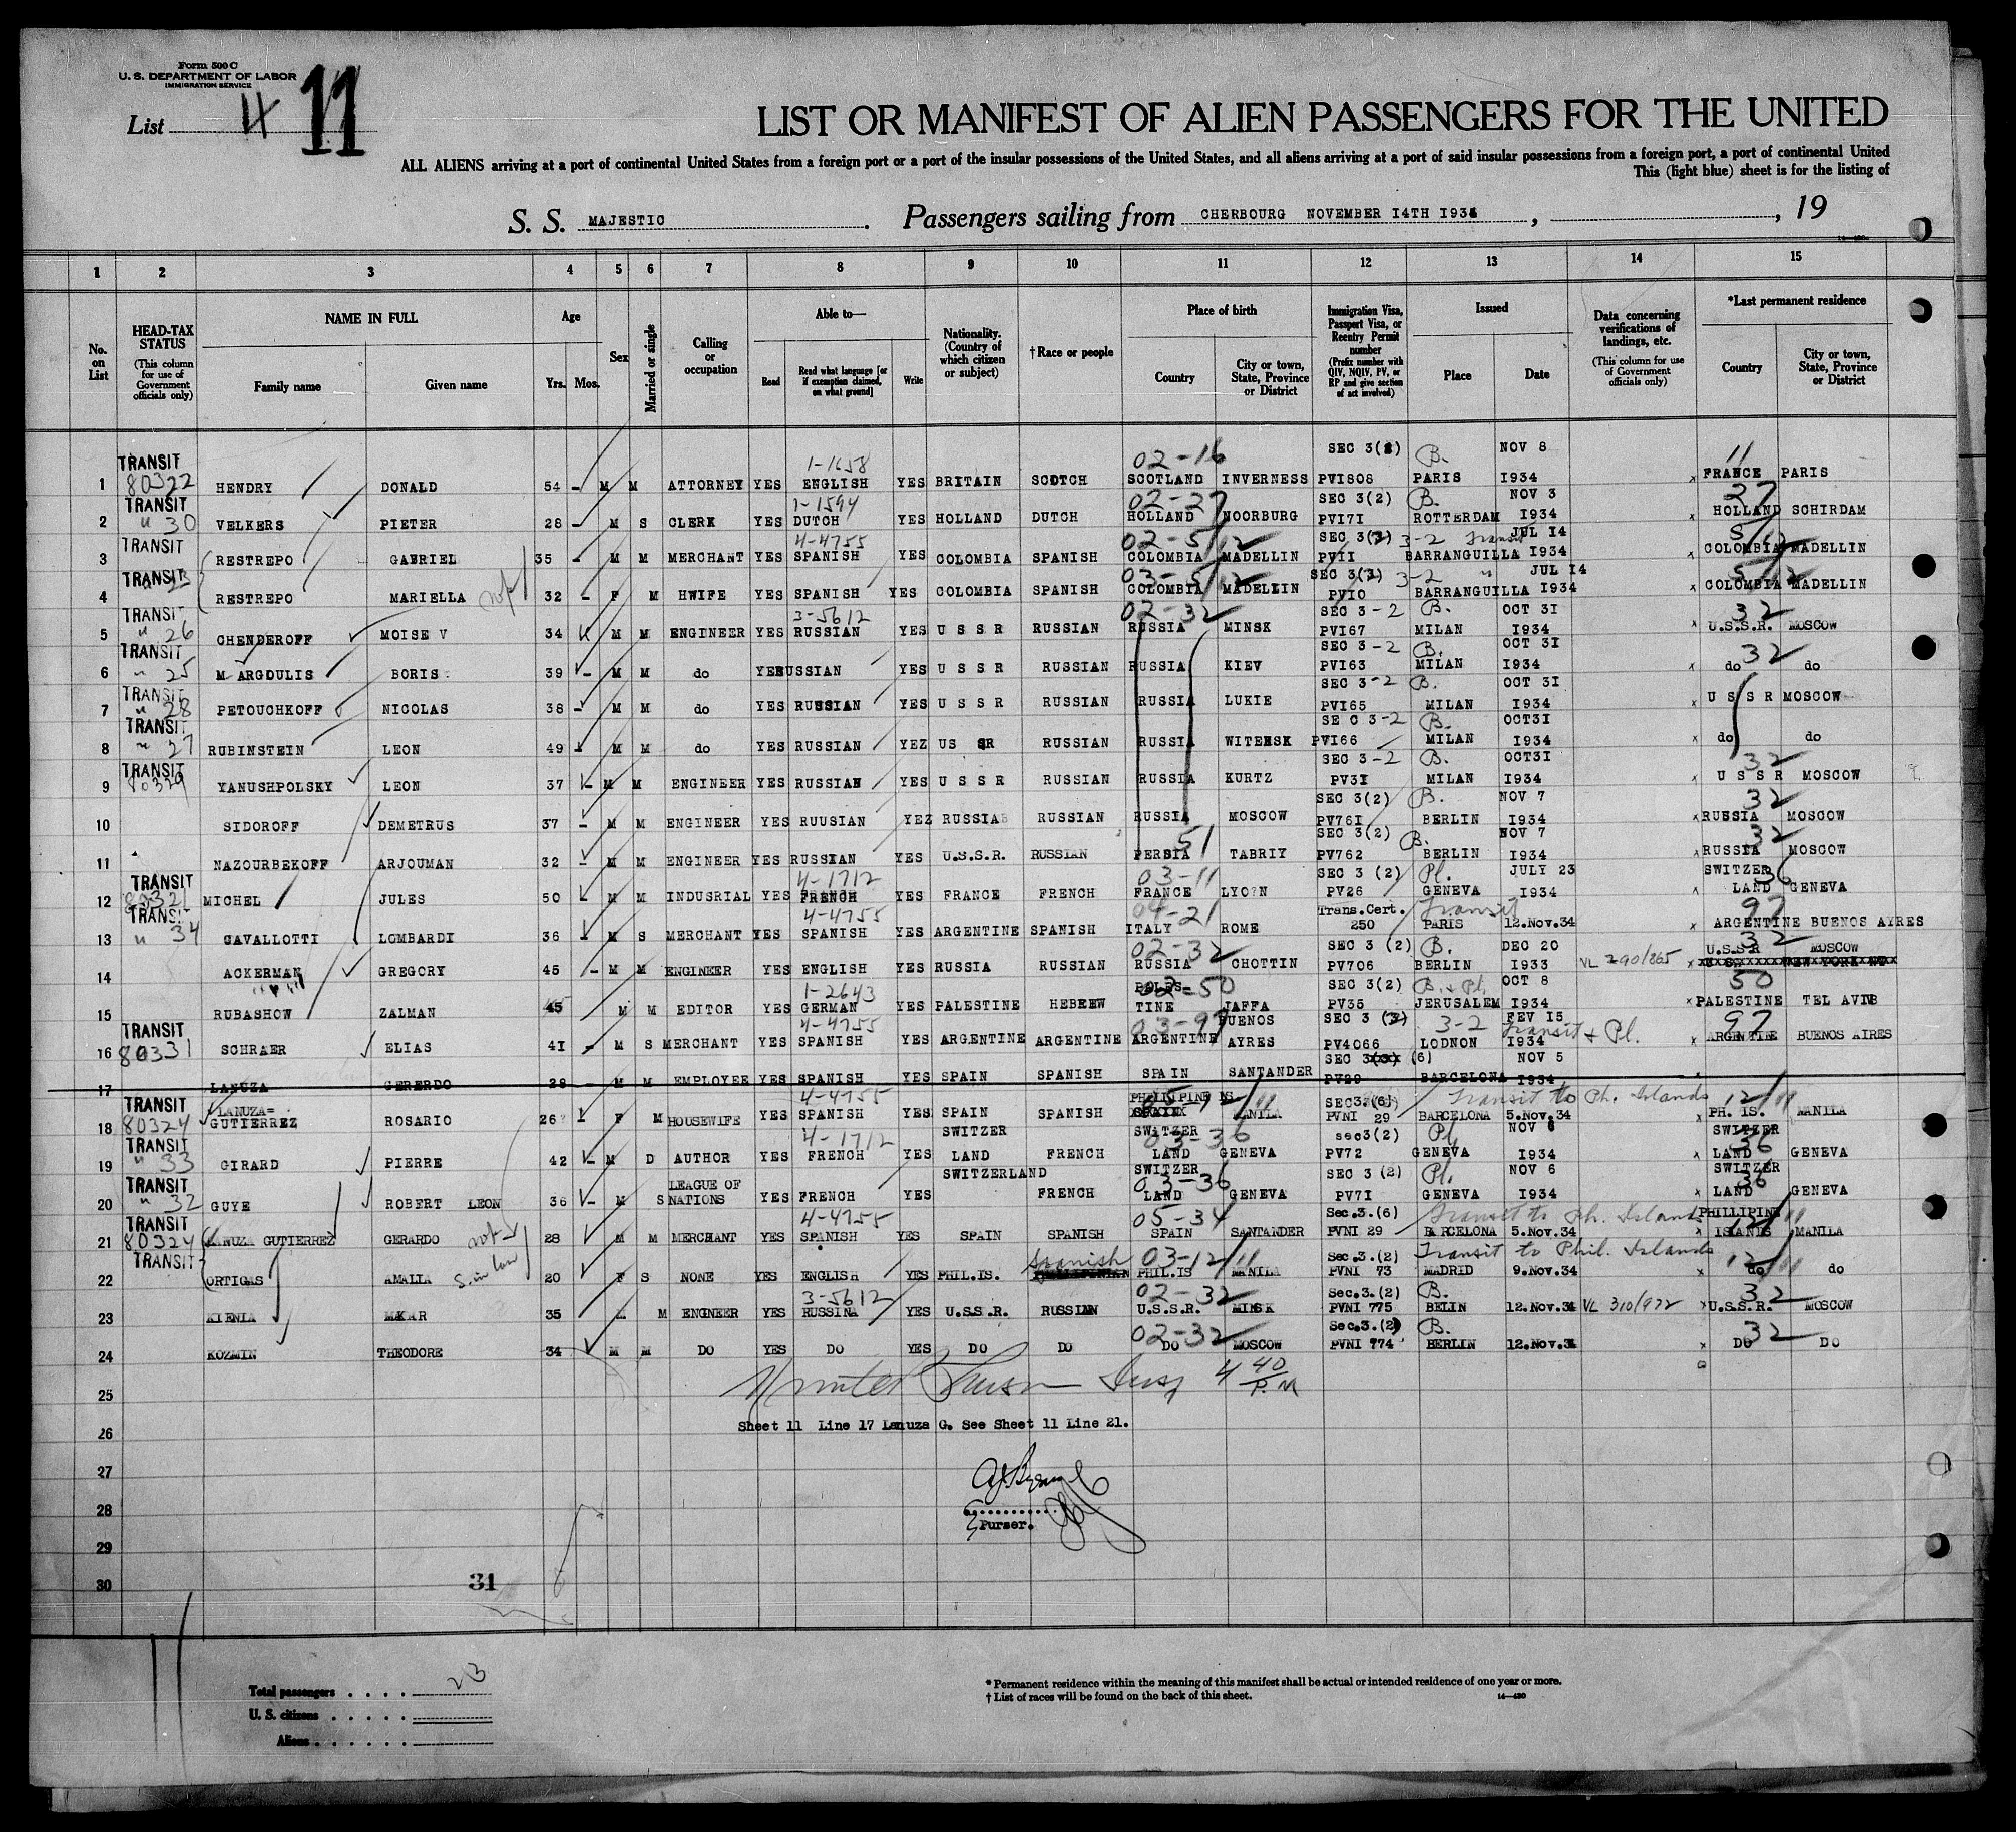 Form 500 C
U. S. DEPARTMENT OF LABOR
IMMIGRATION SERVICE
List 4 11
LIST OR MANIFEST OF ALIEN PASSENGERS FOR THE UNITED
ALL ALIENS arriving at a port of continental United States from a foreign port or a port of the insular possessions of the United States, and all aliens arriving at a port of said insular possessions from a foreign port, a port of continental United
This (light blue) sheet is for the listing of
S. S. MAJESTIC. Passengers sailing from CHERBOURG NOVEMBER 14TH 1934, , 19
1 2 3 4 5 6 7 8 9 10 11 12 13 14 15
No. on List
HEAD-TAX STATUS (This column for use of Government officials only)
NAME IN FULL Family name Given name
Age Yrs. Mos.
Sex
Married or single
Calling or occupation
Able to— Read Read what language [or if exemption claimed, on what ground] Write
Nationality. (Country of which citizen or subject)
†Race or people
Place of birth Country City or town, State, Province or District
Immigration Visa, Passport Visa, or Reentry Permit number (Prefix number with QIV, NQIV, PV, or RP and give section of act involved)
Issued Place Date
Data concerning verifications of landings, etc. (This column for use of Government officials only)
*Last permanent residence Country City or town, State, Province or District
TRANSIT 1-1658 02-16 SEC 3(2) B. NOV 8 11
1 80322 HENDRY DONALD 54 - M M ATTORNEY YES ENGLISH YES BRITAIN SCOTCH SCOTLAND INVERNESS PVI808 PARIS I934 x FRANCE PARIS
TRANSIT 1-1594 02-27 SEC 3(2) B. NOV 3 27
2 " 30 VELKERS PIETER 28 - M S CLERK YES DUTCH YES HOLLAND DUTCH HOLLAND NOORBURG PVI7I ROTTERDAM I934 x HOLLAND SCHIRDAM
TRANSIT 4-4755 02-5/12 SEC 3(2) 3-2 Transit JUL I4 5/12
3 RESTREPO GABRIEL 35 - M M MERCHANT YES SPANISH YES COLOMBIA SPANISH COLOMBIA MADELLIN PVII BARRANGUILLA I934 x COLOMBIA MADELLIN
TRANSIT 03-5/12 SEC 3(2) 3-2 " JUL I4 5/12
4 " 23 RESTREPO MARIELLA 32 - F M HWIFE YES SPANISH YES COLOMBIA SPANISH COLOMBIA MADELLIN PVIO BARRANGUILLA I934 x COLOMBIA MADELLIN
TRANSIT 3-5612 02-32 SEC 3-2 B. OCT 3I 32
5 " 26 CHENDEROFF MOISE V 34 M M ENGINEER YES RUSSIAN YES U S S R RUSSIAN RUSSIA MINSK PVI67 MILAN I934 x U.S.S.R. MOSCOW
TRANSIT SEC 3-2 B. OCT 3I 32
6 " 25 MARGDULIS BORIS 39 - M M do YES RUSSIAN YES U S S R RUSSIAN RUSSIA KIEV PVI63 MILAN I934 x do do
TRANSIT SEC 3-2 B. OCT 3I
7 " 28 PETOUCHKOFF NICOLAS 38 - M M do YES RUSSIAN YES U S S R RUSSIAN RUSSIA LUKIE PVI65 MILAN I934 x U S S R MOSCOW
TRANSIT SE C 3-2 B. OCT3I
8 " 27 RUBINSTEIN LEON 49 M M do YES RUSSIAN YEZ US SR RUSSIAN RUSSIA WITEHSK PVI66 MILAN I934 x do do
TRANSIT SEC 3-2 B. OCT3I 32
9 80329 YANUSHPOLSKY LEON 37 M M ENGINEER YES RUSSIAN YES U S S R RUSSIAN RUSSIA KURTZ PV3I MILAN I934 x U S S R MOSCOW
SEC 3(2) B. NOV 7 32
10 SIDOROFF DEMETRUS 37 - M M ENGINEER YES RUUSIAN YEZ RUSSIA RUSSIAN RUSSIA MOSCOW PV76I BERLIN I934 x RUSSIA MOSCOW
51 SEC 3(2) B. NOV 7 32
11 NAZOURBEKOFF ARJOUMAN 32 - M M ENGINEER YES RUSSIAN YES U.S.S.R. RUSSIAN PERSIA TABRIY PV762 BERLIN I934 x RUSSIA MOSCOW
TRANSIT 4-1712 03-11 SEC 3 (2) Pl. JULY 23 SWITZER 36
12 80321 MICHEL JULES 50 M M INDUSRIAL YES FRENCH YES FRANCE FRENCH FRANCE LYO?N PV26 GENEVA I934 LAND GENEVA
TRANSIT 4-4755 04-21 Trans.Cert. Transit 97
13 " 34 CAVALLOTTI LOMBARDI 36 - M S MERCHANT YES SPANISH YES ARGENTINE SPANISH ITALY ROME 250 PARIS 12.Nov.34 x ARGENTINE BUENOS AYRES
02-32 SEC 3 (2) B. DEC 20 U.S.S.R 32 MOSCOW
14 ACKERMAN GREGORY 45 - M M ENGINEER YES ENGLISH YES RUSSIA RUSSIAN RUSSIA CHOTTIN PV706 BERLIN I933 VL 290/865 x NEW YORK
1-2643 PALES- 02-50 SEC 3(2) B. & Pl. OCT 8 50
15 RUBASHOW ZALMAN 45 M M EDITOR YES GERMAN YES PALESTINE HEBREW TINE JAFFA PV35 JERUSALEM I934 x PALESTINE TEL AVIV
TRANSIT 4-4755 03-97 BUENOS SEC 3 (2) 3-2 Transit & Pl. FEV I5 97
16 80331 SCHRAER ELIAS 4I - M S MERCHANT YES SPANISH YES ARGENTINE ARGENTINE ARGENTINE AYRES PV4066 LODNON I934 x ARGENTINE BUENOS AIRES
SEC 3 (6) NOV 5
17 LANUZA GERERDO 28 - M M EMPLOYEE YES SPANISH YES SPAIN SPANISH SPAIN SANTANDER PV29 BARCELONA I934
TRANSIT LANUZA= 4-4755 PHILIPINE IS SEC3.(6) Transit to Ph. Islands 12/11
18 80324 GUTIERREZ ROSARIO 26 F M HOUSEWIFE YES SPANISH YES SPAIN SPANISH MANILA PVNI 29 BARCELONA 5.Nov.34 x PH. IS. MANILA
TRANSIT 4-1712 SWITZER SWITZER 03-36 sec3(2) Pl. NOV 6 SWITZER 36
19 " 33 GIRARD PIERRE 42 - M D AUTHOR YES FRENCH YES LAND FRENCH LAND GENEVA PV72 GENEVA I934 x LAND GENEVA
TRANSIT LEAGUE OF SWITZERLAND SWITZER 03-36 SEC 3 (2) Pl. NOV 6 SWITZER 36
20 " 32 GUYE ROBERT LEON 36 - M S NATIONS YES FRENCH YES FRENCH LAND GENEVA PV7I GENEVA I934 x LAND GENEVA
TRANSIT 4-4755 05-34 Sec.3.(6) Transit to Ph. Islands PHILLIPINE 12/11
21 80324 LANUZA GUTIERREZ GERARDO 28 M M MERCHANT YES SPANISH YES SPAIN SPANISH SPAIN SANTANDER PVNI 29 BARCELONA 5.Nov.34 x ISLANDS MANILA
TRANSIT Spanish 03-12/11 Sec.3.(2) Transit to Phil. Islands 12/11
22 ORTIGAS AMALIA S. in law 20 F S NONE YES ENGLISH YES PHIL.IS. PHIL.IS MANILA PVNI 73 MADRID 9.Nov.34 x do do
3-5612 02-32 Sec.3.(2) B. 32
23 KIENIA MAKAR 35 M ENGINEER YES RUSSINA YES U.S.S.R. RUSSIAN U.S.S.R. MINSK PVNI 775 BELIN 12.Nov.34 VL 310/972 x U.S.S.R. MOSCOW
02-32 Sec.3.(2) B. 32
24 KOZMIN THEODORE 34 M M DO YES DO YES DO DO DO MOSCOW PVNI 774 BERLIN 12.Nov.34 x DO DO
25 Insp 4 40 P.M
26 Sheet 11 Line 17 Lanuza G. See Sheet 11 Line 21.
27
28
Purser.
29
30 31
Total passengers . . . . 23
U. S. citizens . . . . .
Aliens . . . . . .
* Permanent residence within the meaning of this manifest shall be actual or intended residence of one year or more.
† List of races will be found on the back of this sheet. 14—430